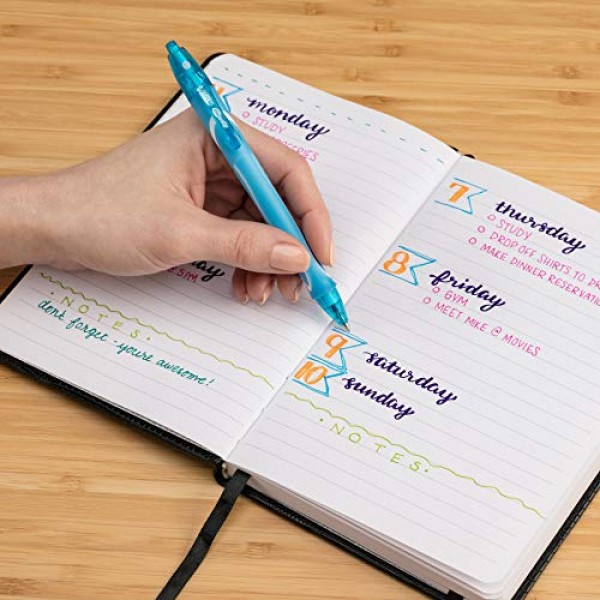 monday
STUDY
day
GYM
NOTES.
don't forget - you're awesome!
7 thursday
STUDY
DROP OFF SHIRTS TO DR
MAKE DINNER RESERVATION
8 friday
GYM
MEET MIKE @ MOVIES
9 saturday
10 sunday
·NOTES·